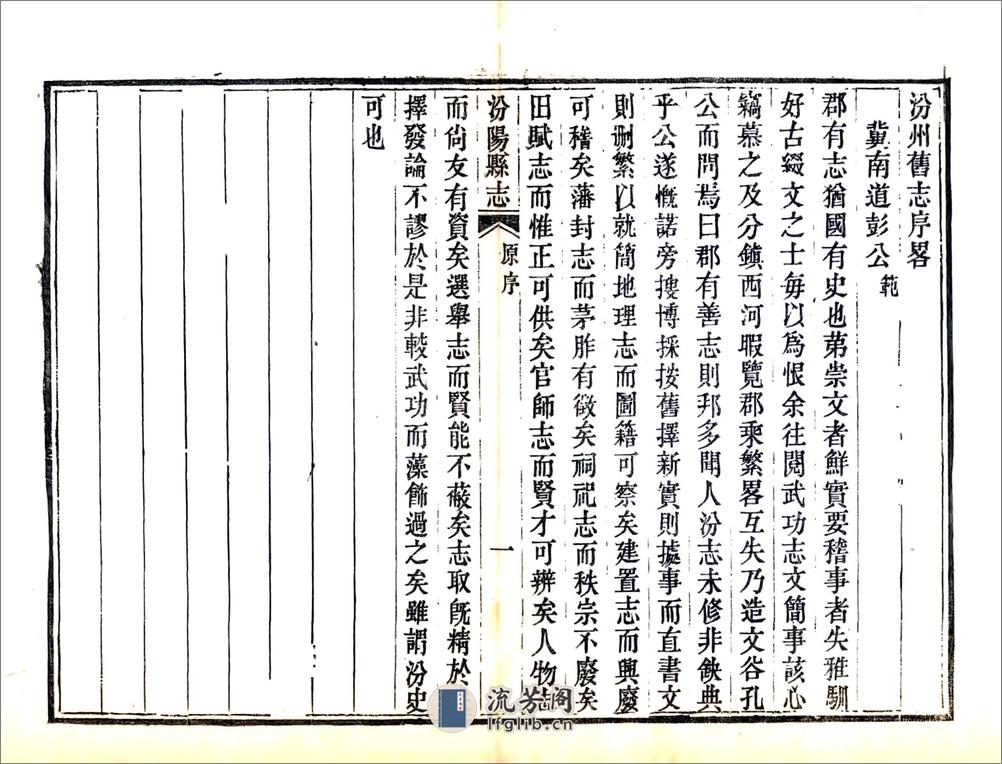 汾州舊志序畧
冀南道彭公範
郡有志猶國有史也苐崇文者鮮實要稽事者失雅馴
好古綴文之士每以為恨余往閱武功志文簡事該心
竊慕之及分鎮西河暇覽郡乘繁畧互失乃造文谷孔
公而問焉曰郡有善志則邦多聞人汾志未修非缺典
乎公遂慨諾旁搜博採按舊擇新實則據事而直書文
則刪繁以就簡地理志而圖籍可察矣建置志而興廢
可稽矣藩封志而茅胙有徵矣祠祀志而秩宗不廢矣
田賦志而惟正可供矣官師志而賢才可辨矣人物志
汾陽縣志 原序 一
而尙友有資矣選舉志而賢能不蔽矣志取旣精於
擇發論不謬於是非較武功而藻飾過之矣雖謂汾史
可也
流芳阁
lfglib.cn